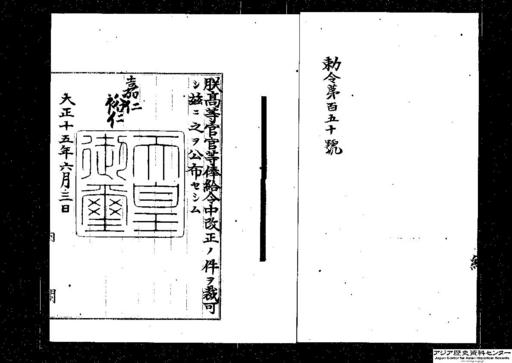 勅令第百五十號
朕高等官官等俸給令中改正ノ件ヲ裁可
シ茲ニ之ヲ公布セシム
嘉仁
裕仁
天皇
御璽
大正十五年六月三日
内閣
アジア歴史資料センター
Japan Center for Asian Historical Records